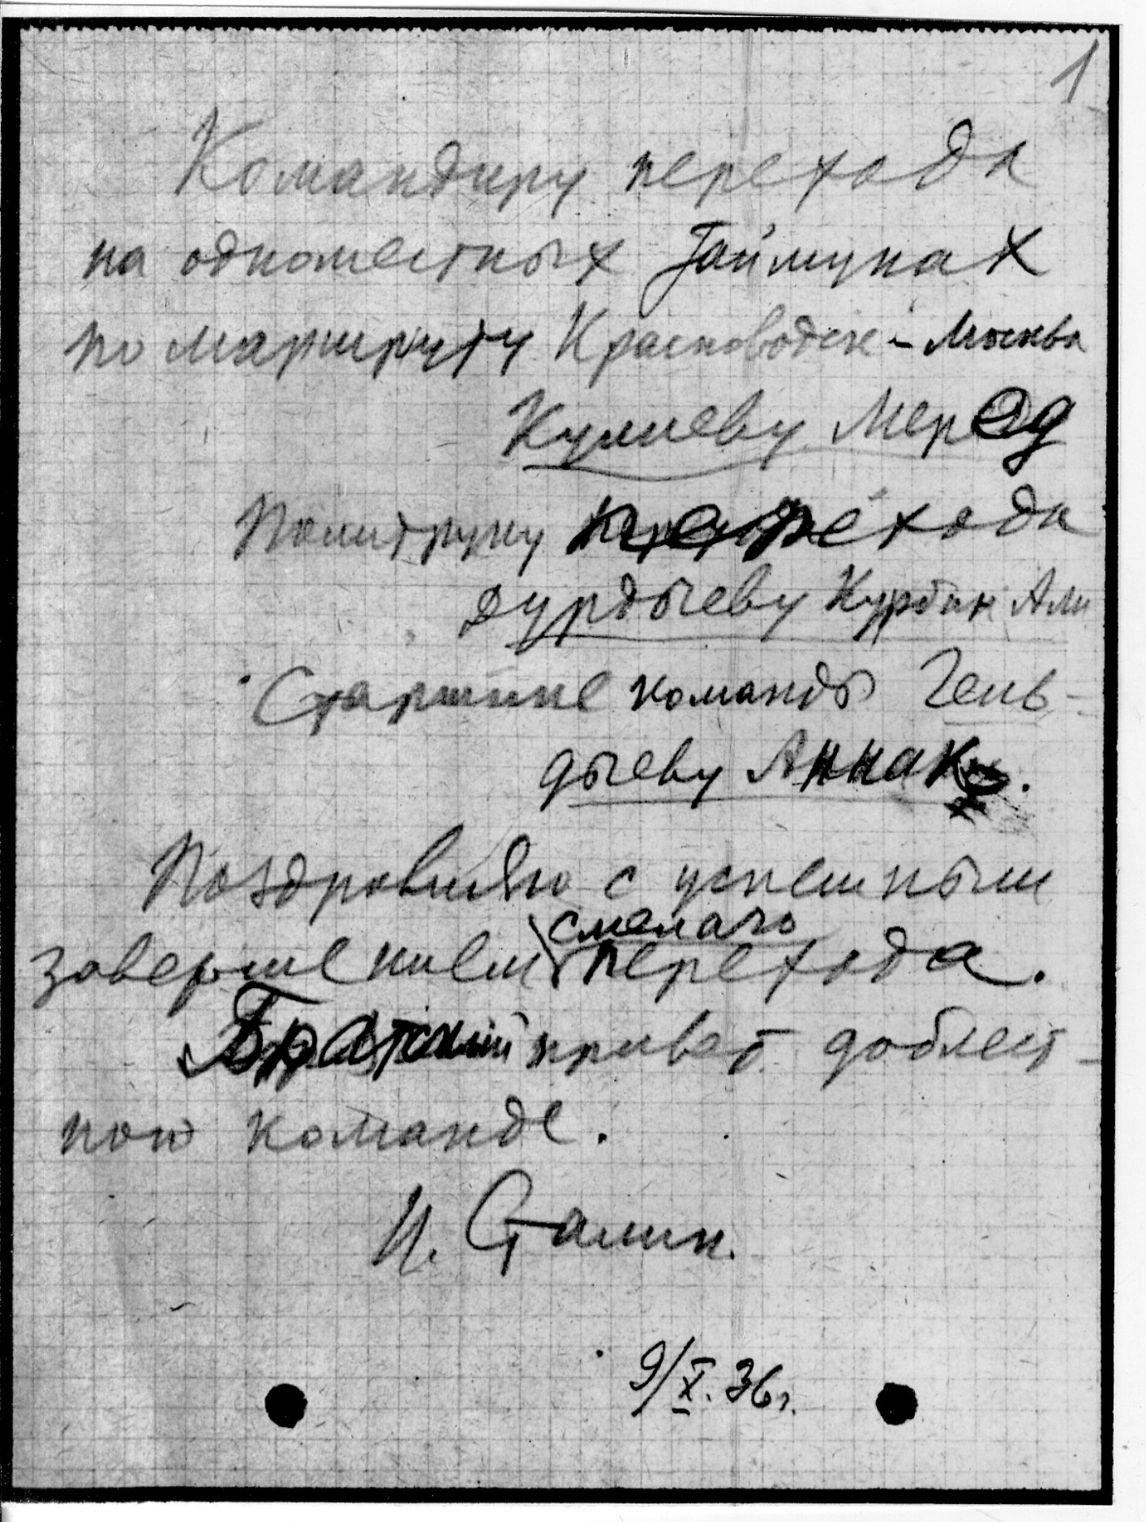 1
Командиру перехода
на одноместных Таймунах
по маршруту Красноводск – Москва
Кулиеву Меред
Политруку перехода
Дурдыеву Курбан Али
Старшине команды Гель-
дыеву Аннак
Поздравляю с успешным
смелого
завершением перехода.
Братский привет доблест-
ной команде.
И. Сталин.
9/X. 36 г.